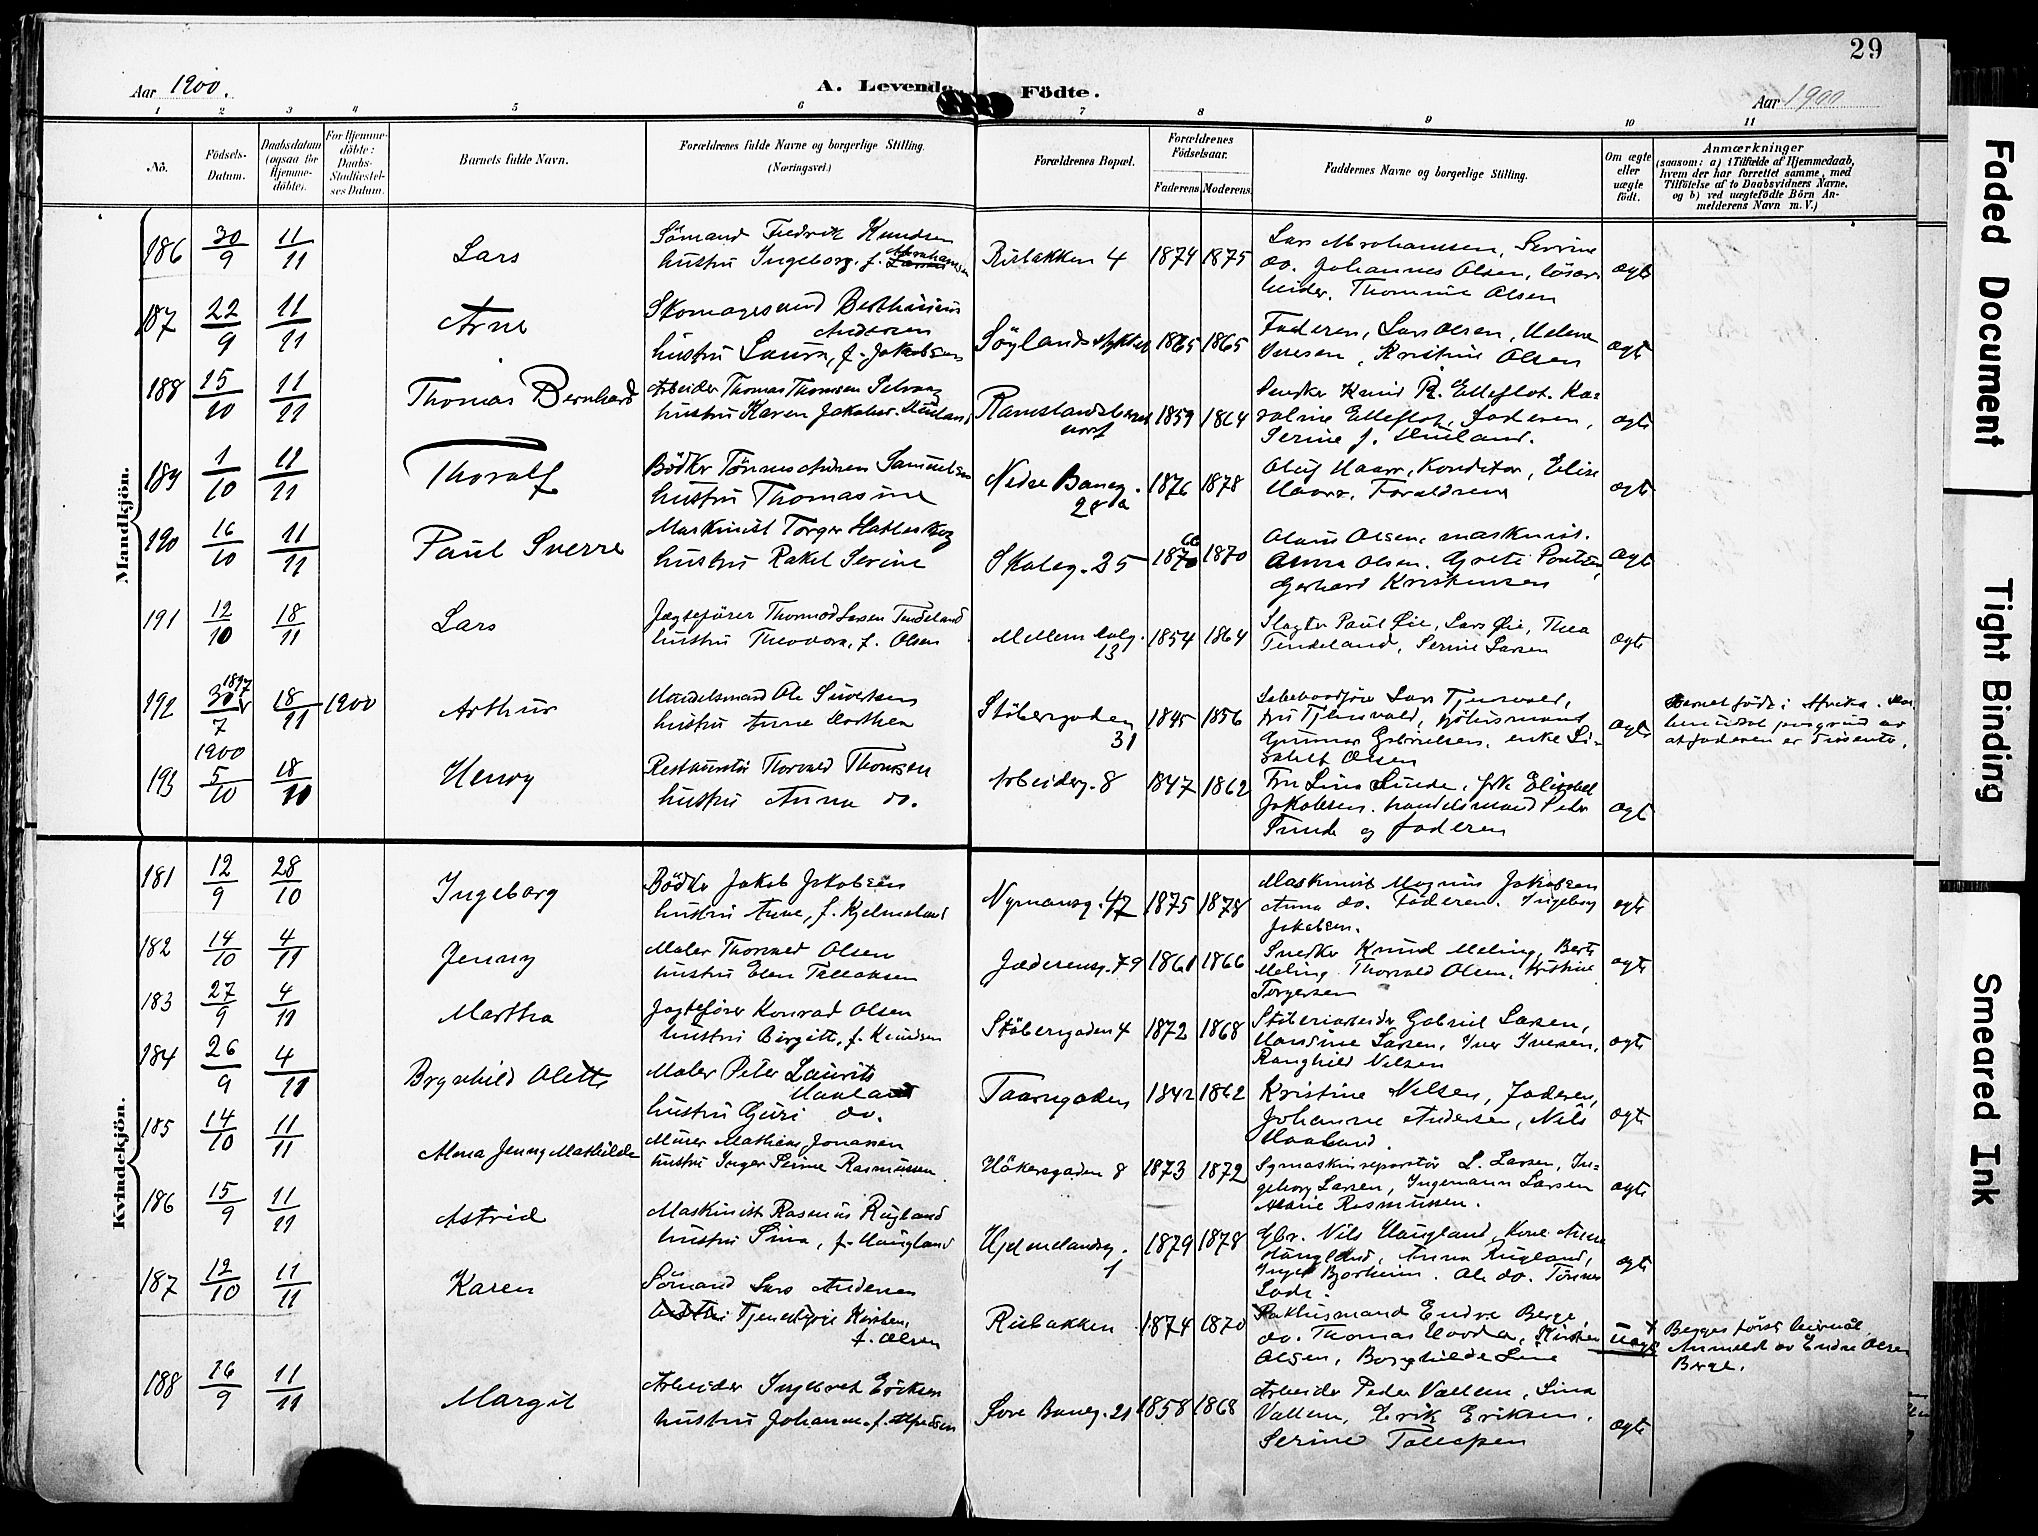 29
Aar 1900.
A. Levende Födte.
Aar 1900
1 2 3 4 5 6 7 8 9 10 11
No.
Födsels-Datum.
Daabsdatum (ogsaa for Hjemme-döbte).
For Hjemme-döbte: Daabs-Stadfæstel-ses Datum.
Barnets fulde Navn.
Forældrenes fulde Navne og borgerlige Stilling. (Næringsvei.)
Forældrenes Bopæl.
Forældrenes Födselsaar.
Faderens. Moderens.
Faddernes Navne og borgerlige Stilling.
Om ægte eller uægte födt.
Anmærkninger
(saasom: a) i Tilfælde af Hjemmedaab, hvem der har forrettet samme, med Tilföielse af to Daabsvidners Navne, og b) ved uægtefödte Börn An-melderens Navn m. V.)
Mandkjön.
186 30/9 11/11 Lars
Sömand Fredrik Knudsen
hustru Ingeborg, f. Abrahamsen
Risbakken 4 1874 1875
Lars Abrahamsen, Serine
do. Johannes Olsen, lösar-
beider. Thomine Olsen
ægte
187 22/9 11/11 Arne
Skomagersvend Berthinius
Andersen
hustru Laura, f. Jakobsen
Söylandsstykket 1865 1865
Faderen, Lars Olsen, Helene
Iversen, Kristine Olsen
ægte
188 15/10 11/11 Thomas Bernhard
Arbeider Thomas Thomsen Selvaag
hustru Karen Jakobs.
1859 1864
Snedker Knud R. Elleflot. Ka-
roline Elleflot, faderen,
Serine J.
ægte
189 1/10 11/11 Thoralf
Bödker Tönnes Andreas Samuelsen
hustru Thomasine
Nedre Baneg. 28a 1876 1878
Oluf Haarr, Konditor, Elise
Haarr. Forældrene
ægte
190 16/10 11/11 Paul Sverre
Maskinist Torger
hustru Rakel Serine
Skoleg. 25 1870 1870
Olaus Olsen, maskinist.
Anna Olsen. Grete Poulsen,
Gerhard Kristensen
ægte
191 12/10 18/11 Lars
Jægtefører Thormod Larsen Tendeland
hustru Theodora, f. Olsen
13 1854 1864
Slagter Paul Øie, Lars Øie, Thea
Tendeland, Serine Larsen
ægte
192 30/7 1897 18/11 1900 Arthur
Handelsmand Ole Sivertsen
hustru Anne Dorthea
Støbergaden 31 1845 1856
Lars Tjensvold,
fru Tjensvold,
Gunnar Gabrielsen, enke Li-
sabet Olsen
ægte
Barnet födt i Afrika.
paa grund av
at faderen er
193 1900 5/10 18/10 Henry
Thorvald Thomsen
hustru Anna do.
Arbeiderg. 8 1847 1862
Fru Lina Sunde, frk Elisabet
Jakobsen. handelsmand Peder
Sunde og faderen
ægte
Kvindekjön.
181 12/9 28/10 Ingeborg
Bödker Jakob Jakobsen
hustru Anne, f. Hjelmeland
Nymansg. 47 1875 1878
Maskinist Magnus Jakobsen
Anna do. Faderen. Ingeborg
Jakobsen.
ægte
182 14/10 4/11 Jenny
Maler Thorvald Olsen
hustru Elen Tallaksen
Jæderensg. 79 1861 1866
Snedker Knud Meling, Berte
Meling. Thorvald Olsen, Kristine
Torgersen
ægte
183 27/9 4/11 Martha
Jagtefører Konrad Olsen
hustru Birgitte, f. Knudsen
Støbergaden 4 1872 1868
Gabriel Larsen,
Hansine Larsen, Iver Iversen,
Ranghild Nilsen
ægte
184 26/9 4/11 Brynhild Olette
Maler Peter Laurits
Maaland
hustru Guri do.
Taarngaden 1842 1862
Kristine Nilsen, Faderen,
Johanne Andersen, Nils
Maaland.
ægte
185 14/10 11/11 Alma Jenny Mathilde
Murer Mathias Jonassen
hustru Inger Serine Rasmussen
Hökergaden 8 1873 1872
Symaskinreparatör L. Larsen, In-
geborg Larsen, Ingemann Larsen
Marie Rasmussen.
ægte
186 15/9 11/11 Astrid
Maskinist Rasmus Rugland
hustru Sina, f. Haugland
Hjelmelandsg. 1 1879 1878
Gbr. Nils Haugland, kone Anne
Haugland, Anna Rugland,
Inger Bjorheim. Ole do. Tönnes
Lode.
ægte
187 12/10 11/11 Karen
Sömand Lars Andersen
Tjenestpige Kirsten,
f. Olsen
Risbakken 1874 1870
Pakhusmand Endre Berge,
do. Thomas Hovda, Kirsten
Olsen, Borghilde Line
uægte
Begges första leiermål
Anmeldt av Endre Olsen
Berge.
188 16/9 11/11 Margit
Arbeider Ingebret Eriksen
hustru Johanne, f. Alfredsen
Øvre Baneg. 21 1858 1868
Arbeider Peder Vallem, Sina
Vallem, Erik Eriksen,
Serine Tollefsen
ægte
Faded Document
Tight Binding
Smeared Ink